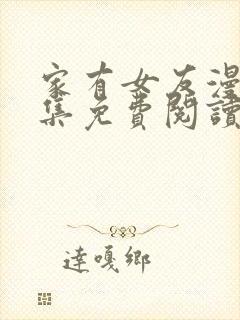 家有女友漫
集免費閱讀
達嘎鄉